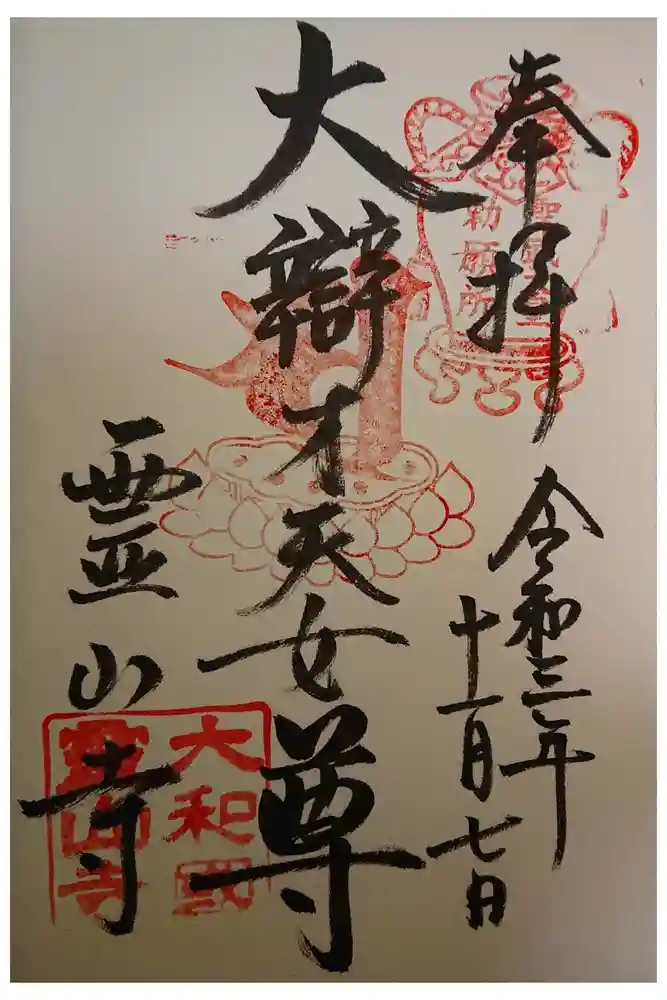 奉拝
令和三年
十一月七日
大辯才天女尊
霊山寺
勅願所
大和國
霊山寺